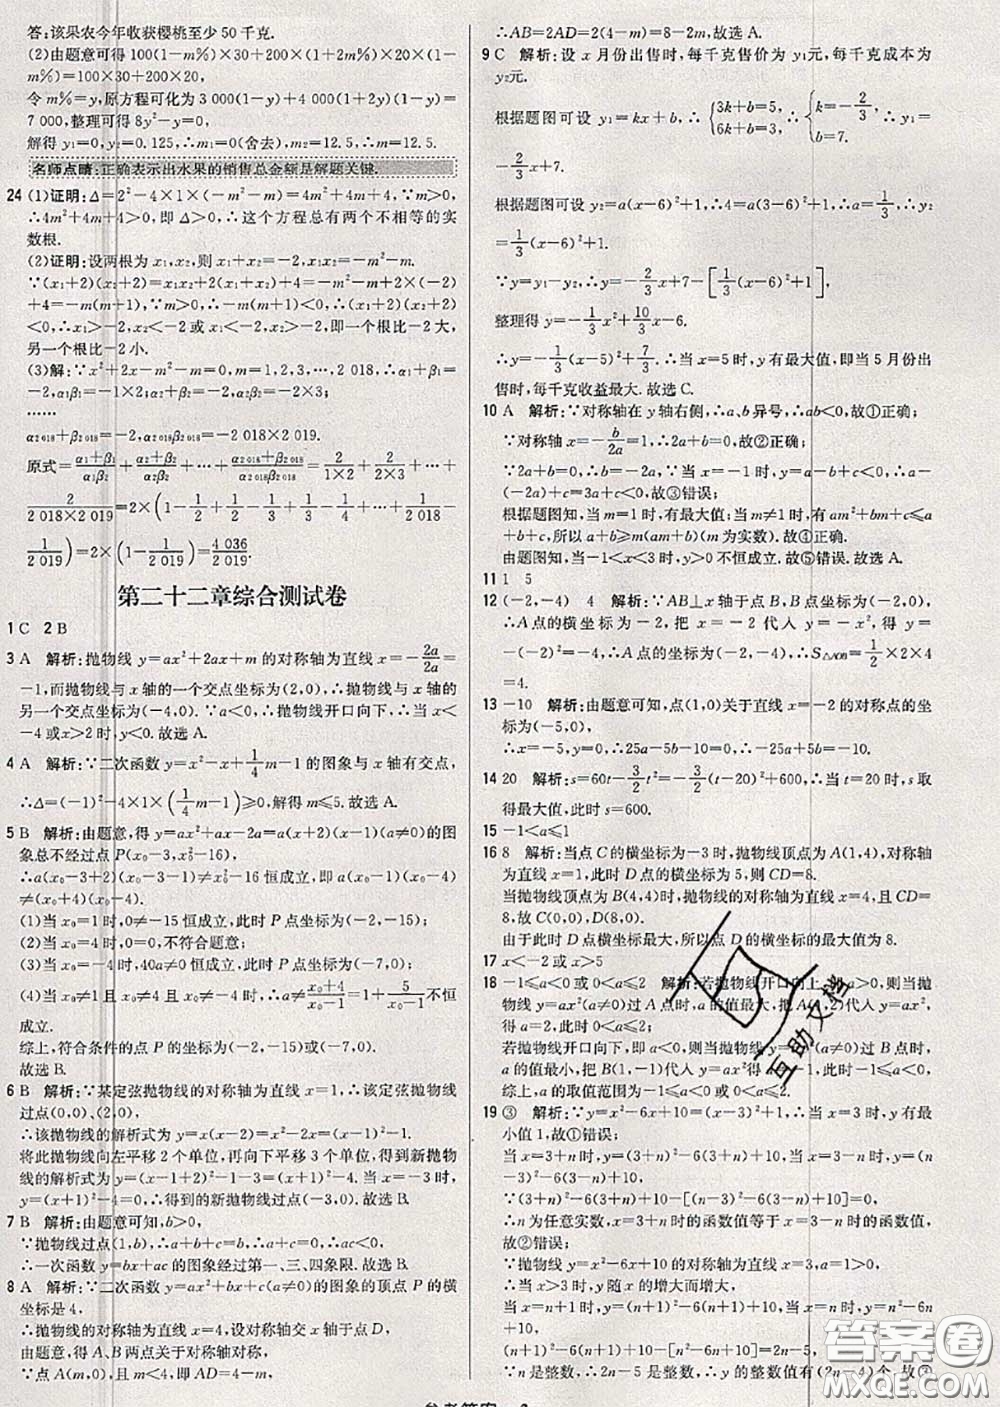 答:该果农今年收获樱桃至少50千克.
(2)由题意可得100(1-m%)×30+200×(1+2m%)×20(1-
m%)=100×30+200×20,
令m%=y,原方程可化为3 000(1-y)+4 000(1+2y)(1-y)=
7 000,整理可得8y²-y=0.
解得y₁=0,y₂=0.125,∴m₁=0(舍去),m₂=12.5,∴m=12.5.
名师点睛:正确表示出水果的销售总金额是解题关键.
24 (1)证明:Δ=2²-4×1×(-m²-m)=4m²+4m+4,∵m>0,
∴4m²+4m+4>0,即Δ>0,∴这个方程总有两个不相等的实
数根.
(2)证明:设两根为x₁,x₂,则x₁+x₂=-2,x₁x₂=-m²-m.
∵(x₁+2)(x₂+2)=x₁x₂+2(x₁+x₂)+4=-m²-m+2×(-
2)+4=-m(m+1),∵m>0,∴-m(m+1)<0,∴(x₁+2)(x₂+2)
<0,∴x₁>-2,x₂<-2或x₁<-2,x₂>-2,即一个根比-2大,
另一个根比-2小.
(3)解:∵x²+2x-m²-m=0,m=1,2,3,…,2 018,∴α₁+β₁=
-2,α₁β₁=-1×2;α₂+β₂=-2,α₂β₂=-2×3;
……
α₂₀₁₈+β₂₀₁₈=-2,α₂₀₁₈β₂₀₁₈=-2 018×2 019.
原式=(α₁+β₁)/(α₁β₁)+(α₂+β₂)/(α₂β₂)+…+(α₂₀₁₈+β₂₀₁₈)/(α₂₀₁₈β₂₀₁₈)=2/(1×2)+2/(2×3)+…+
2/(2 018×2 019)=2×(1-1/2+1/2-1/3+1/3-1/4+…+1/2 018-
1/2 019)=2×(1-1/2 019)=4 036/2 019.
第二十二章综合测试卷
1 C 2 B
3 A 解析:抛物线y=ax²+2ax+m的对称轴为直线x=-2a/2a=
-1,而抛物线与x轴的一个交点坐标为(2,0),∴抛物线与x轴的
另一个交点坐标为(-4,0).∵a<0,∴抛物线开口向下,∴当x<
-4或x>2时,y<0.故选A.
4 A 解析:∵二次函数y=x²-x+1/4m-1的图象与x轴有交点,
∴Δ=(-1)²-4×1×(1/4m-1)≥0,解得m≤5.故选A.
5 B 解析:由题意,得y=ax²+ax-2a=a(x+2)(x-1)(a≠0)的图
象总不经过点P(x₀-3,x₀²-16),
∴a(x₀-3+2)(x₀-3-1)≠x₀²-16恒成立,即a(x₀-1)(x₀-4)
≠(x₀+4)(x₀-4).
(1)当x₀=1时,0≠-15恒成立,此时P点坐标为(-2,-15);
(2)当x₀=4时,0=0,不符合题意;
(3)当x₀=-4时,40a≠0恒成立,此时P点坐标为(-7,0);
(4)当x₀≠1且x₀≠4且x₀≠-4时,a≠(x₀+4)/(x₀-1)=1+5/(x₀-1)不恒
成立.
综上,符合条件的点P的坐标为(-2,-15)或(-7,0).
故选B.
6 B 解析:∵某定弦抛物线的对称轴为直线x=1,∴该定弦抛物线
过点(0,0)、(2,0),
∴该抛物线的解析式为y=x(x-2)=x²-2x=(x-1)²-1.
将此抛物线向左平移2个单位,再向下平移3个单位,得到新抛物
线的解析式为y=(x-1+2)²-1-3=(x+1)²-4.
当x=-3时,y=(x+1)²-4=0,∴得到的新抛物线过点(-3,0).故选B.
7 B 解析:由题意可知,b>0,
∵抛物线过点(1,b),∴a+b+c=b,∴a+c=0,∴ac<0,
∴一次函数y=bx+ac的图象经过第一、三、四象限.故选B.
8 A 解析:∵二次函数y=ax²+bx+c(a≠0)的图象的顶点P的横
坐标是4,
∴抛物线的对称轴为直线x=4,设对称轴交x轴于点D,
由两点A、B关于对称轴对称,
∵点A(m,0),且m<4,即AD=4-m,
∴AB=2AD=2(4-m)=8-2m,故选A.
9 C 解析:设x月份出售时,每千克售价为y₁元,每千克成本为
y₂元.
根据题图可设y₁=kx+b,∴{3k+b=5, 6k+b=3, ∴{k=-2/3, b=7, ∴y₁=
-2/3x+7.
根据题图可设y₂=a(x-6)²+1,∴4=a(3-6)²+1,∴a=1/3,∴y₂
=1/3(x-6)²+1.
∵y=y₁-y₂,∴y=-2/3x+7-[1/3(x-6)²+1],
整理得y=-1/3x²+10/3x-6.
∴y=-1/3(x-5)²+7/3.∴当x=5时,y有最大值,即当5月份出
售时,每千克收益最大.故选C.
10 A 解析:∵对称轴在y轴右侧,∴a、b异号,∴ab<0,故①正确;
∵对称轴x=-b/2a=1,∴2a+b=0,故②正确;
∵2a+b=0,∴b=-2a,∵当x=-1时,y=a-b+c<0,∴a-
(-2a)+c=3a+c<0,故③错误;
根据题图知,当m=1时,有最大值;当m≠1时,有am²+bm+c≤a
+b+c,所以a+b≥m(am+b)(m为实数).故④正确.
由题图知,当-1<x<3时,y>0不恒成立,故⑤错误.故选A.
11 1 5
12 (-2,-4) 4 解析:∵AB⊥x轴于点B,B点坐标为(-2,0),
∴A点的横坐标为-2,把x=-2代入y=-x²,得y=
-(-2)²=-4,∴A点坐标为(-2,-4),∴S△AOB=1/2×2×4
=4.
13 -10 解析:由题意可知,点(1,0)关于直线x=-2的对称点的坐
标为(-5,0),
∴x=-5时,y=0,∴25a-5b-10=0,∴25a-5b=10.
14 20 解析:s=60t-3/2t²=-3/2(t-20)²+600,∴当t=20时,s取
得最大值,此时s=600.
15 -1<a≤1
16 8 解析:当点C的横坐标为-3时,抛物线顶点为A(1,4),对称轴
为直线x=1,此时D点的横坐标为5,则CD=8.
当抛物线顶点为B(4,4)时,抛物线的对称轴为直线x=4,且CD=
8,故C(0,0),D(8,0).
由于此时D点横坐标最大,所以点D的横坐标的最大值为8.
17 x<-2或x>5
18 -1≤a<0或0<a≤2 解析:若抛物线开口向上,即a>0,则当抛
物线y=ax²(a≠0)过A点时,a的值最大,把A(1,2)代入y=ax²,
得a=2,此时0<a≤2;
若抛物线开口向下,即a<0,则当抛物线y=ax²(a≠0)过B点时,
a的值最小,把B(1,-1)代入y=ax²得a=-1,此时-1≤a<0,
综上,a的取值范围为-1≤a<0或0<a≤2.
19 ③ 解析:∵y=x²-6x+10=(x-3)²+1,∴当x=3时,y有最
小值1,故①错误;
当x=3+n时,y=(3+n)²-6(3+n)+10,当x=3-n时,y=(n
-3)²-6(3-n)+10,
∵(3+n)²-6(3+n)+10-[(n-3)²-6(3-n)+10]=0,
∴n为任意实数,x=3+n时的函数值等于x=3-n时的函数值,
故②错误;
∵抛物线y=x²-6x+10的对称轴为直线x=3,a=1>0,
∴当x>3时,y随x的增大而增大,
当x=n+1时,y=(n+1)²-6(n+1)+10,
当x=n时,y=n²-6n+10,
(n+1)²-6(n+1)+10-[n²-6n+10]=2n-5,
∵n是整数,∴2n-5是整数,
参考答案 3
互助文档
答案圈
MXQE.COM